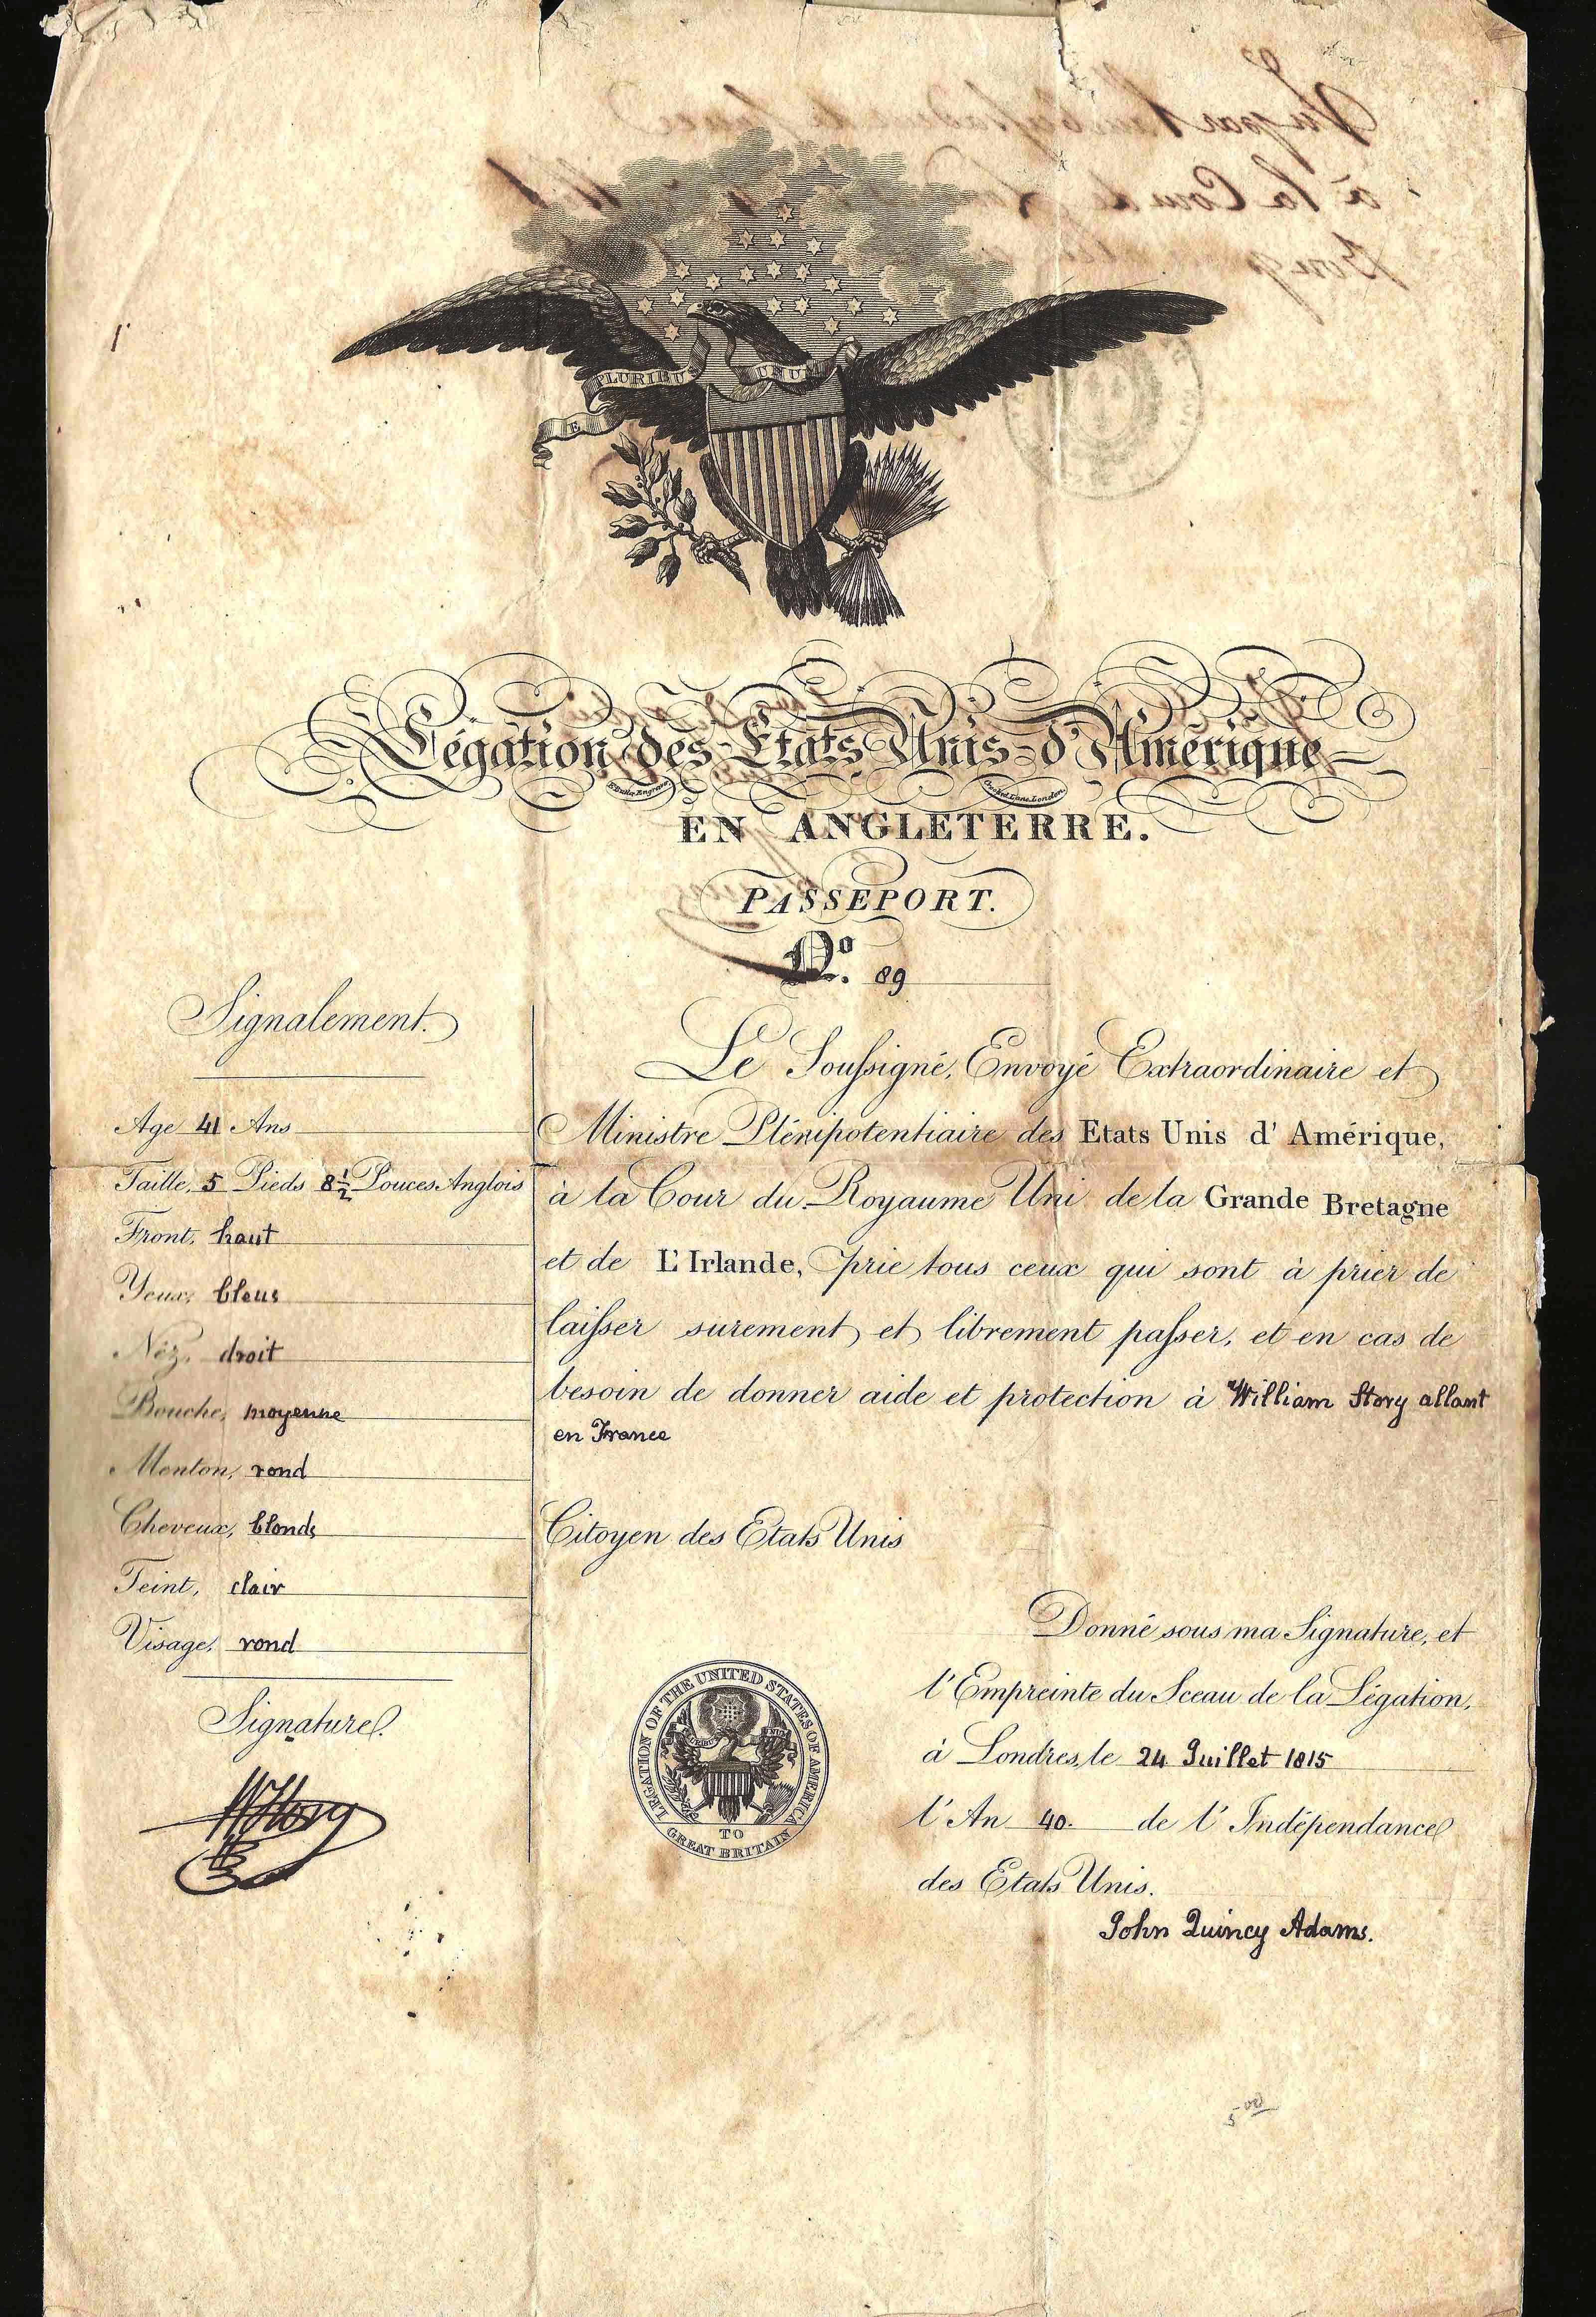 E PLURIBU UNUM
Légation des Etats Unis d'Amérique
EN ANGLETERRE.
PASSEPORT.
No. 89
Signalement.
Age 41 Ans
Taille, 5 Pieds 8½ Pouces Anglois
Front, haut
Yeux, bleus
Néz, droit
Bouche, moyenne
Menton, rond
Cheveux, blonds
Teint, clair
Visage, rond
Signature.
WStory
Le Soussigné, Envoyé Extraordinaire et
Ministre Plénipotentiaire des Etats Unis d' Amérique,
à la Cour du Royaume Uni de la Grande Bretagne
et de L'Irlande, prie tous ceux qui sont à prier de
laisser surement et librement passer, et en cas de
besoin de donner aide et protection à William Story allant
en France
Citoyen des Etats Unis
Donné sous ma Signature, et
l'Empreinte du Sceau de la Légation,
à Londres, le 24 Juillet 1815
l'An 40. de l'Indépendance
des Etats Unis.
John Quincy Adams.
LEGATION OF THE UNITED STATES OF AMERICA
TO
GREAT BRITAIN
5.00